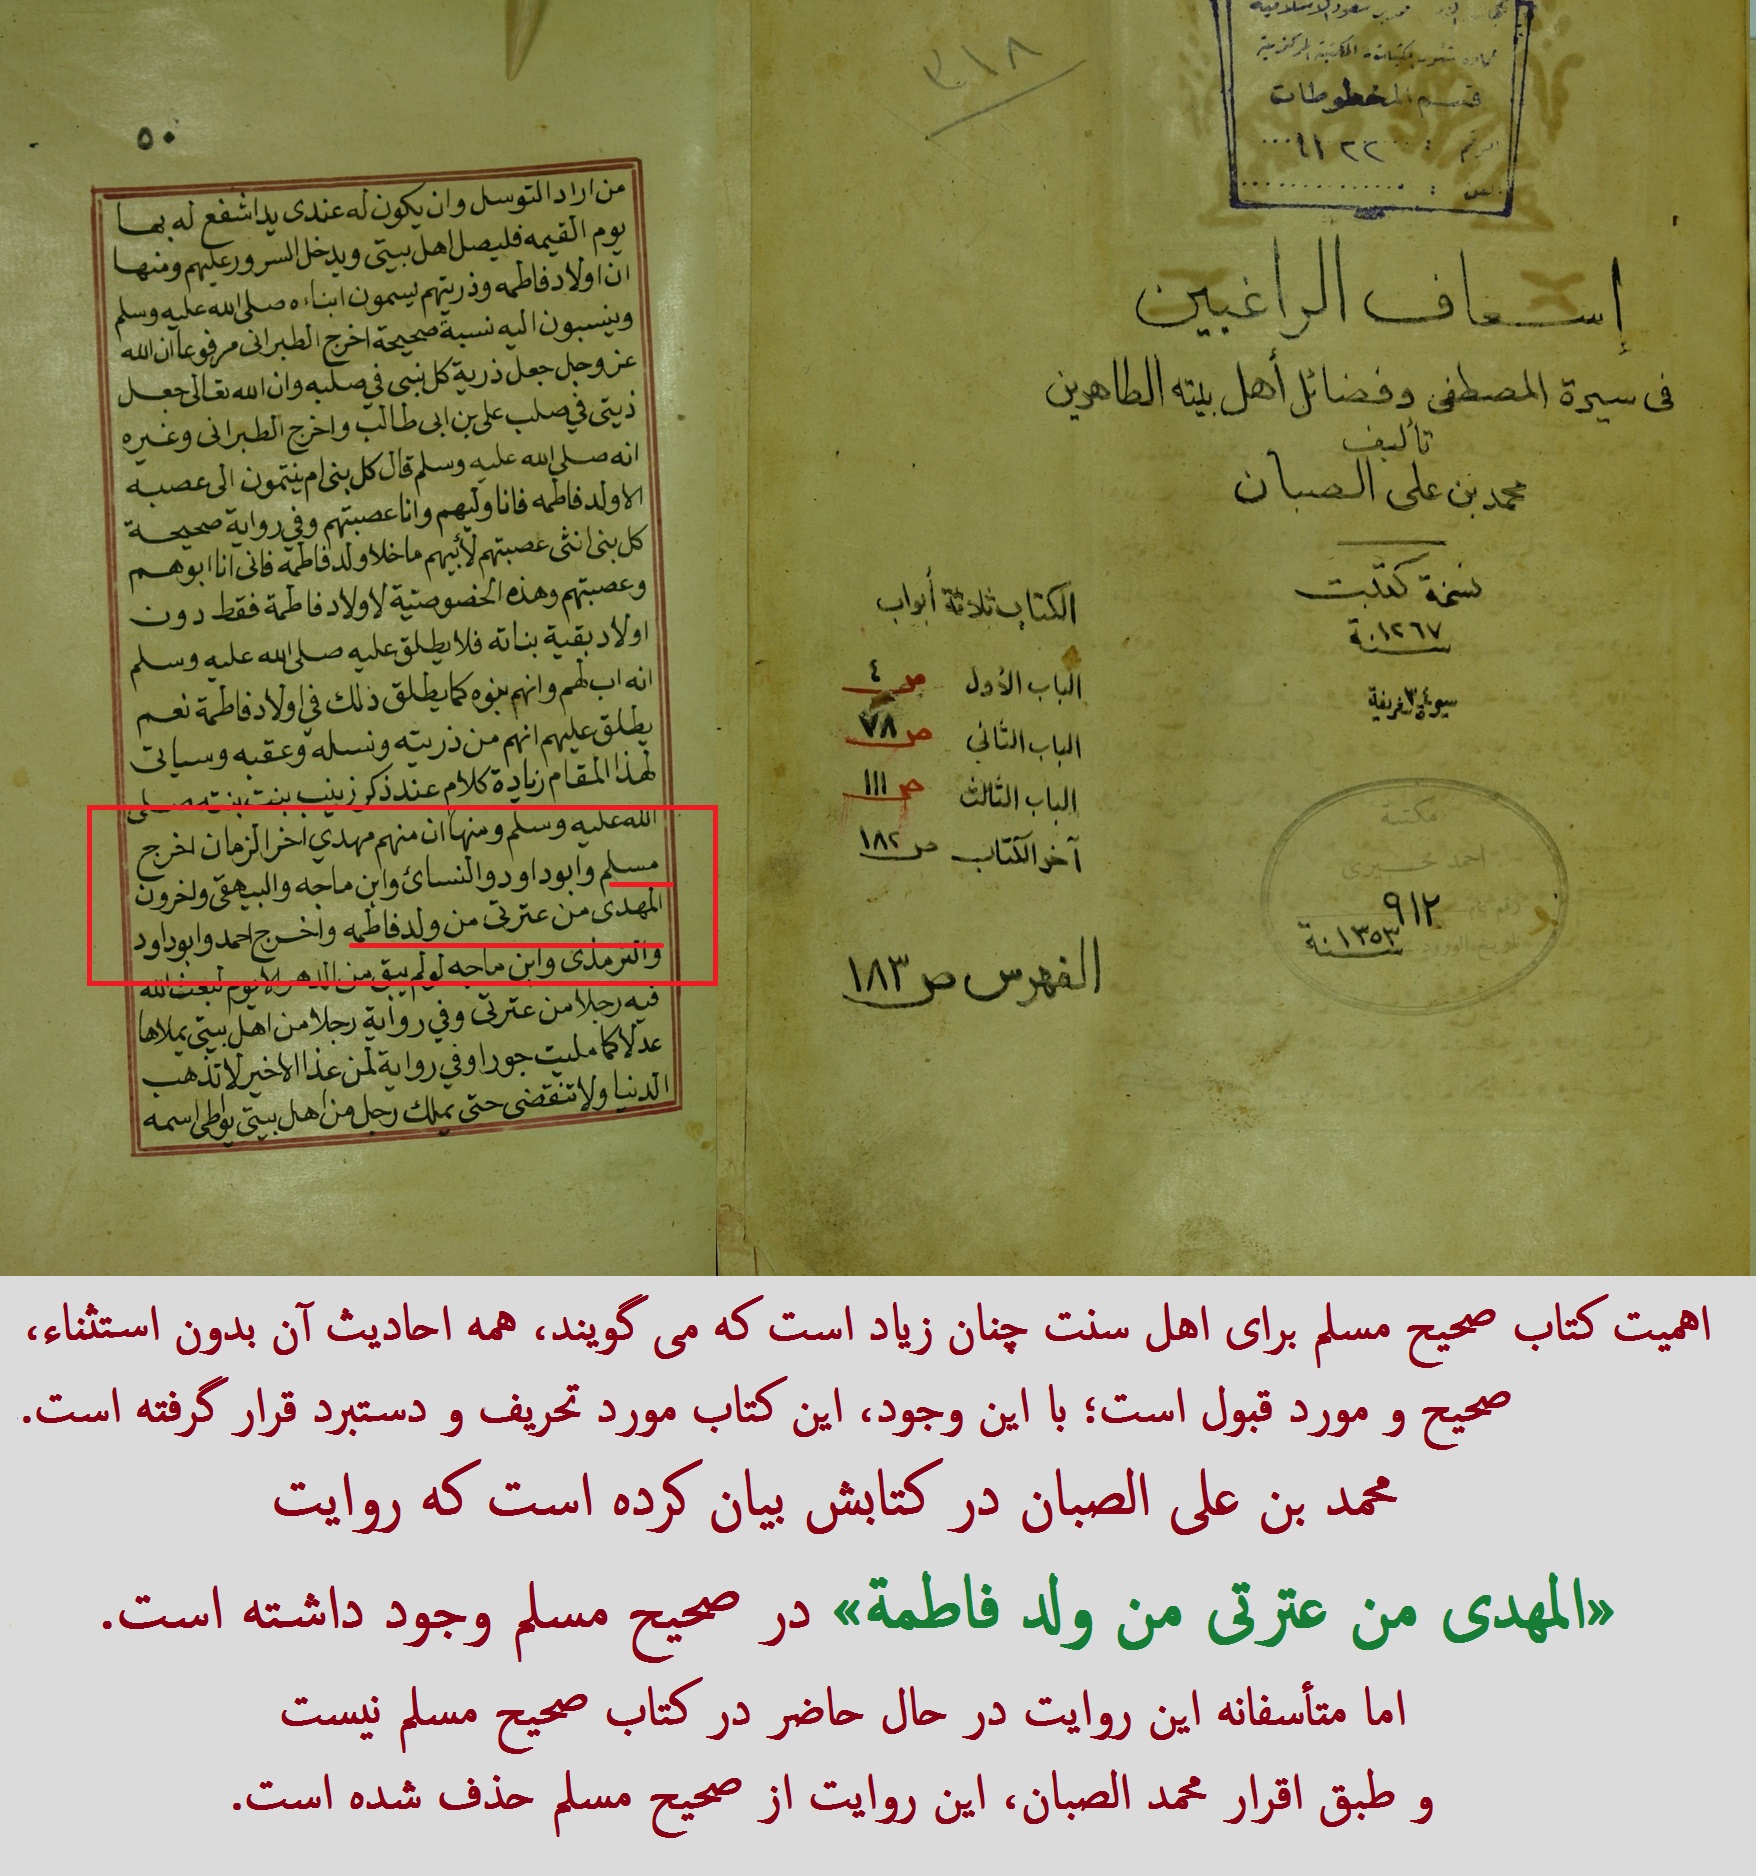 قسم المخطوطات
إسعاف الراغبين
فى سيرة المصطفى وفضائل أهل بيته الطاهرين
تأليف
محمد بن على الصبان
نسخة كتبت
سنة ١٢٦٧
الكتاب ثلاثة أبواب
الباب الأول ص ٤
الباب الثانى ص ٧٨
الباب الثالث ص ١١١
آخر الكتاب ص ١٨٢
الفهرس ص ١٨٣
مكتبة
٩١٢
سنة ١٣٥٣
٥٠
من اراد التوسل وان يكون له عندى يد اشفع له بها
يوم القيمه فليصل اهل بيتى ويدخل السرور عليهم ومنها
ان اولاد فاطمه وذريتهم يسمون ابناءه صلى الله عليه وسلم
وينسبون اليه نسبة صحيحة اخرج الطبرانى مرفوعا ان الله
عز وجل جعل ذرية كل نبى في صلبه وان الله تعالى جعل
ذيتى في صلب على بن ابى طالب واخرج الطبرانى وغيره
انه صلى الله عليه وسلم قال كل بنى ام ينتمون الى عصبه
الا ولد فاطمه فانا وليهم وانا عصبتهم وفي رواية صحيحة
كل بنى انثى عصبتهم لأبيهم ما خلا ولد فاطمه فانى انا ابوهم
وعصبتهم وهذه الخصوصتية لاولاد فاطمة فقط دون
اولاد بقية بناته فلا يطلق عليه صلى الله عليه وسلم
انه اب لهم وانهم بنوه كما يطلق ذلك في اولاد فاطمة نعم
يطلق عليهم انهم من ذريته ونسله وعقبه وسياتى
لهذا المقام زيادة كلام عند ذكر زينب بنت بنته صلى
الله عليه وسلم ومنها ان منهم مهدي اخر الزمان اخرج
مسلم وابو داود والنسائ وابن ماجه والبيهقى واخرون
المهدى من عترتى من ولد فاطمه واخرج احمد وابو داود
والترمذى وابن ماجه لو لم يبق من الدهر الا يوم لبعث الله
فيه رجلا من عترتى وفي رواية رجلا من اهل بيتى يملاها
عدلا كما مليت جورا وفي رواية لمن عذا الاخير لا تذهب
الدنيا ولا تنقضى حتى يملك رجل من اهل بيتى يواطى اسمه
اهمیت کتاب صحیح مسلم برای اهل سنت چنان زیاد است که می گویند، همه احادیث آن بدون استثناء،
صحیح و مورد قبول است؛ با این وجود، این کتاب مورد تحریف و دستبرد قرار گرفته است.
محمد بن علی الصبان در کتابش بیان کرده است که روایت
«المهدی من عترتی من ولد فاطمة» در صحیح مسلم وجود داشته است.
اما متأسفانه این روایت در حال حاضر در کتاب صحیح مسلم نیست
و طبق اقرار محمد الصبان، این روایت از صحیح مسلم حذف شده است.